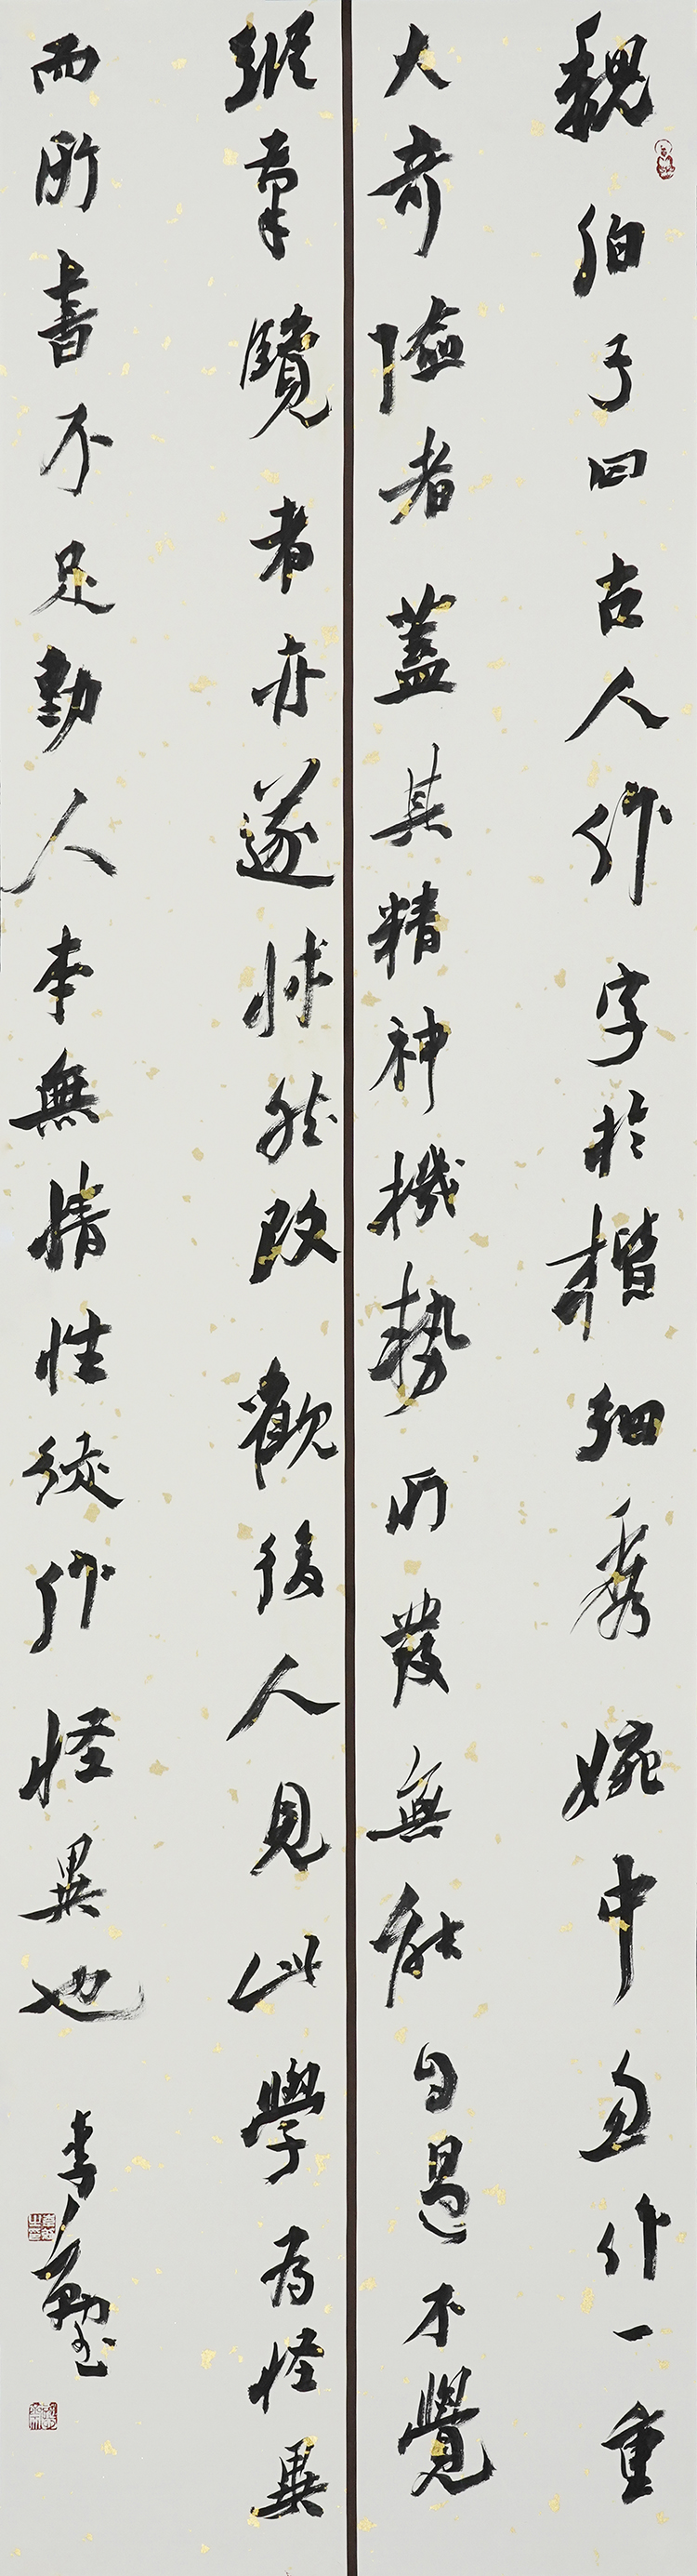 魏伯子曰古人作字於楷細秀婉中忽作一重
大奇險者蓋其精神機勢所發無能自遏不覺
縱筆覽者亦遂怵然改觀後人見此學為怪異
而所書不足動人本無情性徒作怪異也 李